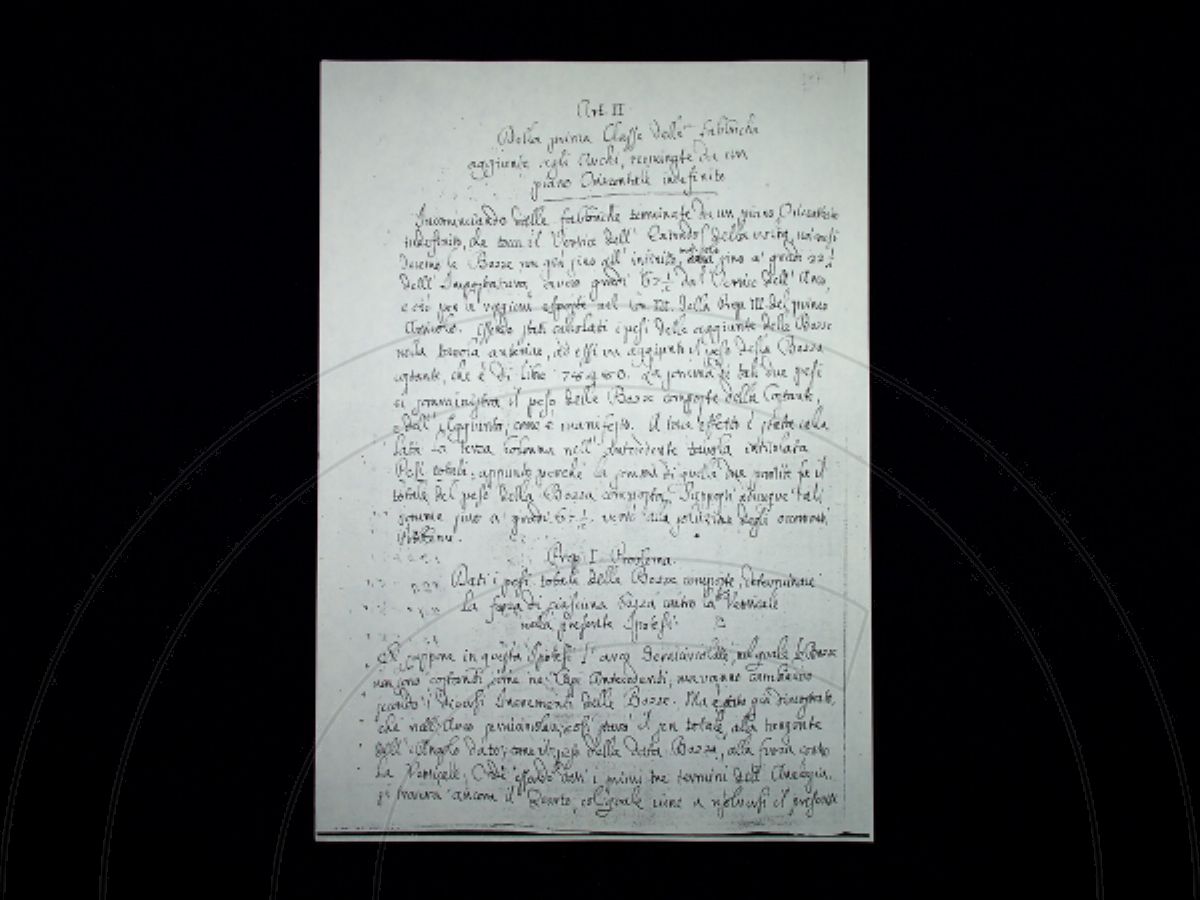 Art. II
Della prima Classe delle fabbriche
aggiunte agli Archi, terminate da un
piano Orizontale indefinito
Incominciando dalle fabbriche terminate da un piano Orizontale
indefinito, che tocca il Vertice dell' Estrados della volta,
le Bozze non già fino all' infinito, fino a' gradi 22½
dell' Impostatura, ovvero gradi 67½ dal Vertice dell' Arco,
e ciò per la ragione esposte nel III. della Prop. III. del primo
Articolo. Essendo stati calcolati i pesi delle aggiunte delle Bozze
nella tavola anteriore, ad essi va aggiunto il peso della Bozza
costante, che è di Libre La somma di tali due pesi
si somministra il peso delle Bozze composte della Costante,
e dell' Aggiunto, come è manifesto. A tale effetto è stata calco
lata la terza Colonna nell' antecedente tavola intitolata
Pesi totali, appunto perchè la somma di quella due partite fa il
totale del peso della Bozza composta. Supposti adunque tali
somme fino a' gradi 67½. verrò alla soluzione degli occorrenti
Problemi.
Prop. I. Problema.
Dati i pesi totali delle Bozze composte, determinare
la forza di ciascuna Bozza contro la Verticale
nella presente Ipotesi.
Si suppone in questa Ipotesi l' arco Semicircolare, nel quale le Bozze
non sono costanti come ne' Capi Antecedenti, ma vanno cambiando
secondo i diversi Incrementi delle Bozze. Ma è stato già dimostrato,
che nell' Arco semicircolare, così stava il sen totale, alla tangente
dell' Angolo dato; come il peso della data Bozza, alla forza contro
la Verticale. Così essendo dati i primi tre termini dell' Analogia,
si troverà ancora il Quarto, col quale viene a risolversi il presente